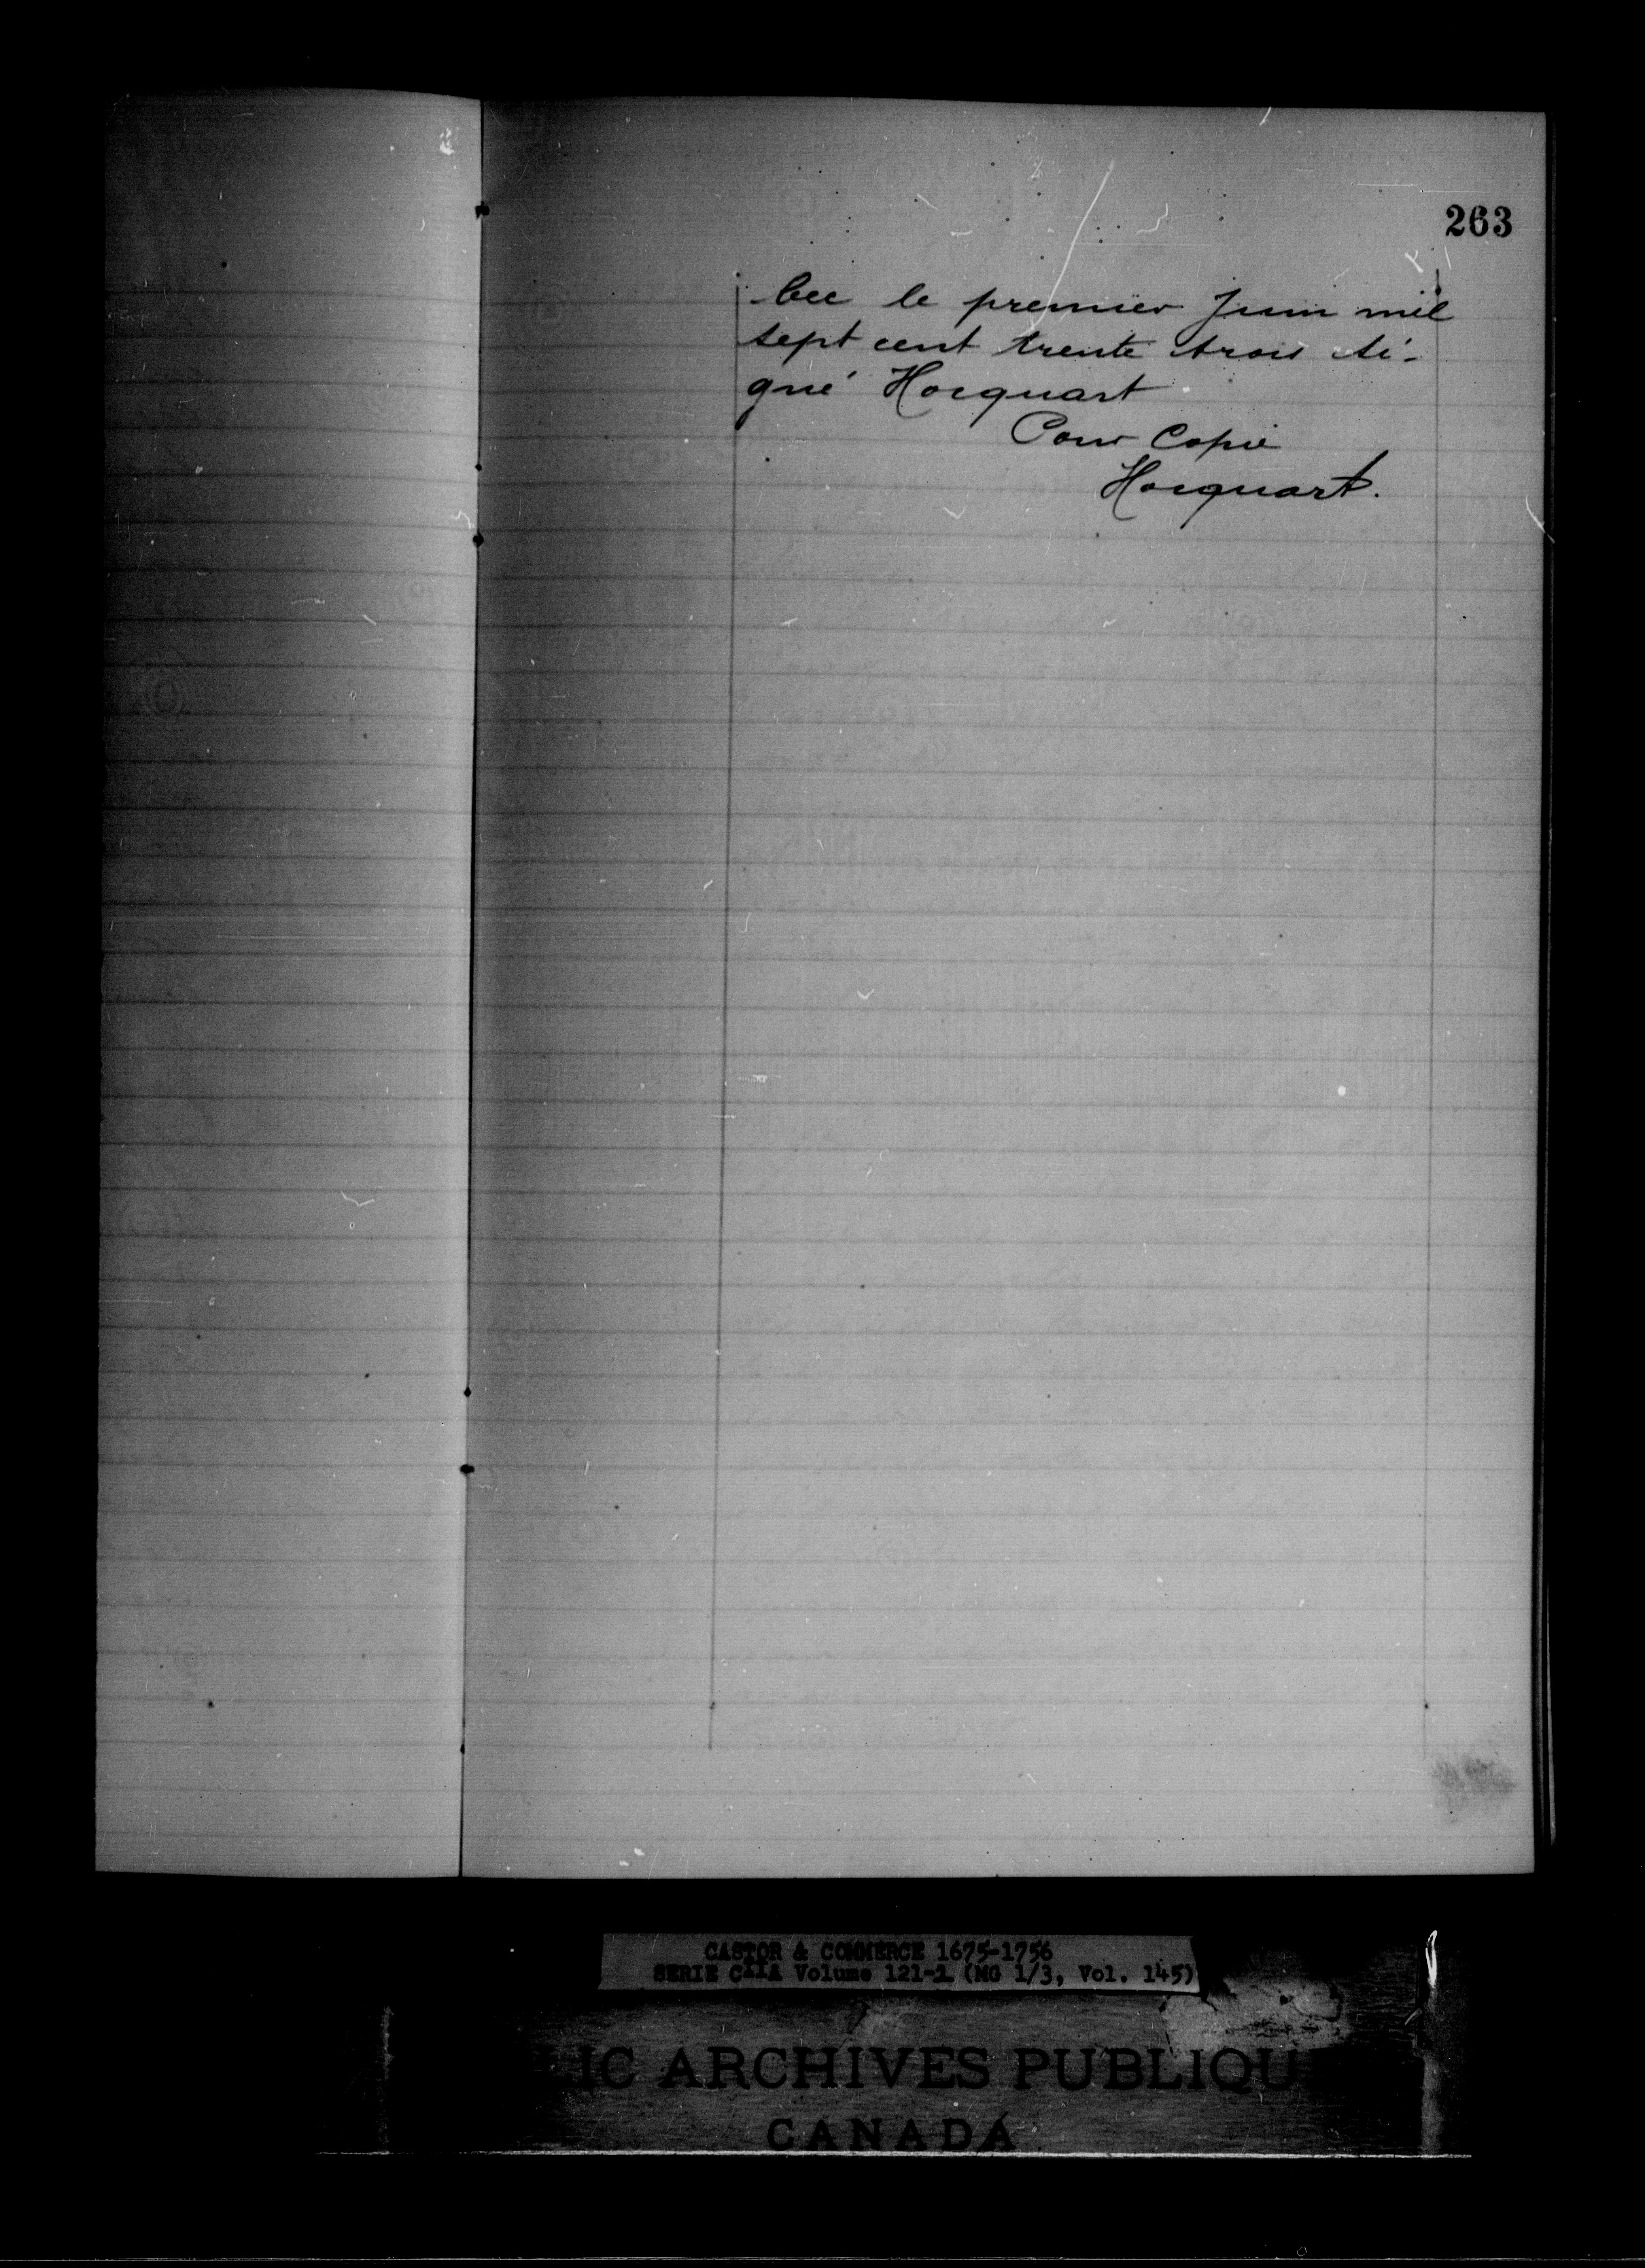 263
bec le premier Juin mil
sept cent trente trois si-
gné Hocquart
Pour Copie
Hocquart.
CASTOR & COMMERCE 1675-1756
SERIE C11A Volume 121-1 (MG 1/3, Vol. 145)
IC ARCHIVES PUBLIQU
CANADA